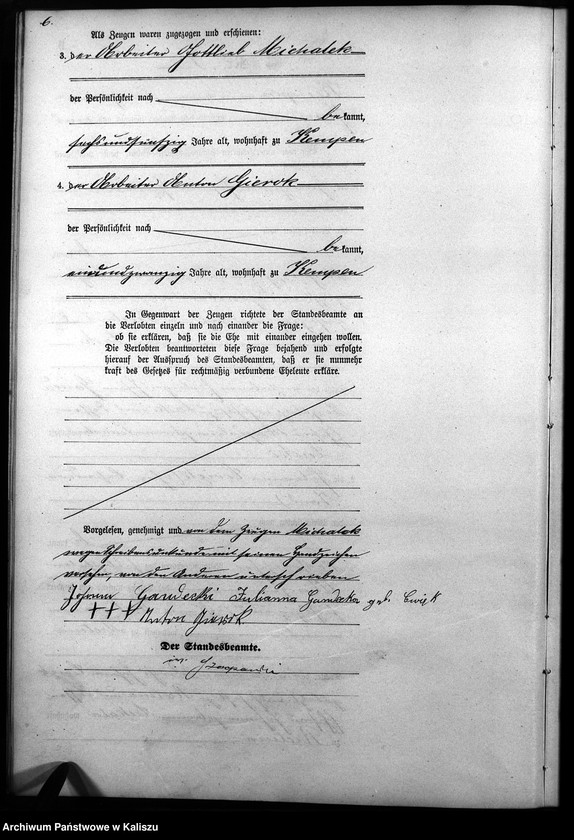 6.
Als Zeugen waren zugezogen und erschienen:
3. der Arbeiter Gottlieb Michalek
der Persönlichkeit nach
bekannt,
sechsundfünfzig Jahre alt, wohnhaft zu Kempen
4. der Arbeiter Anton Gierok
der Persönlichkeit nach
bekannt,
einundzwanzig Jahre alt, wohnhaft zu Kempen
In Gegenwart der Zeugen richtete der Standesbeamte an
die Verlobten einzeln und nach einander die Frage:
ob sie erklären, daß sie die Ehe mit einander eingehen wollen.
Die Verlobten beantworteten diese Frage bejahend und erfolgte
hierauf der Ausspruch des Standesbeamten, daß er sie nunmehr
kraft des Gesetzes für rechtmäßig verbundene Eheleute erkläre.
Vorgelesen, genehmigt und von dem Zeugen Michalek
wegen Schreibensunkunde mit seinem Handzeichen
versehen, von den Anderen unterschrieben
Johann Gawecki Julianna geb.
+++ Anton Gierok
Der Standesbeamte.
Archiwum Państwowe w Kaliszu